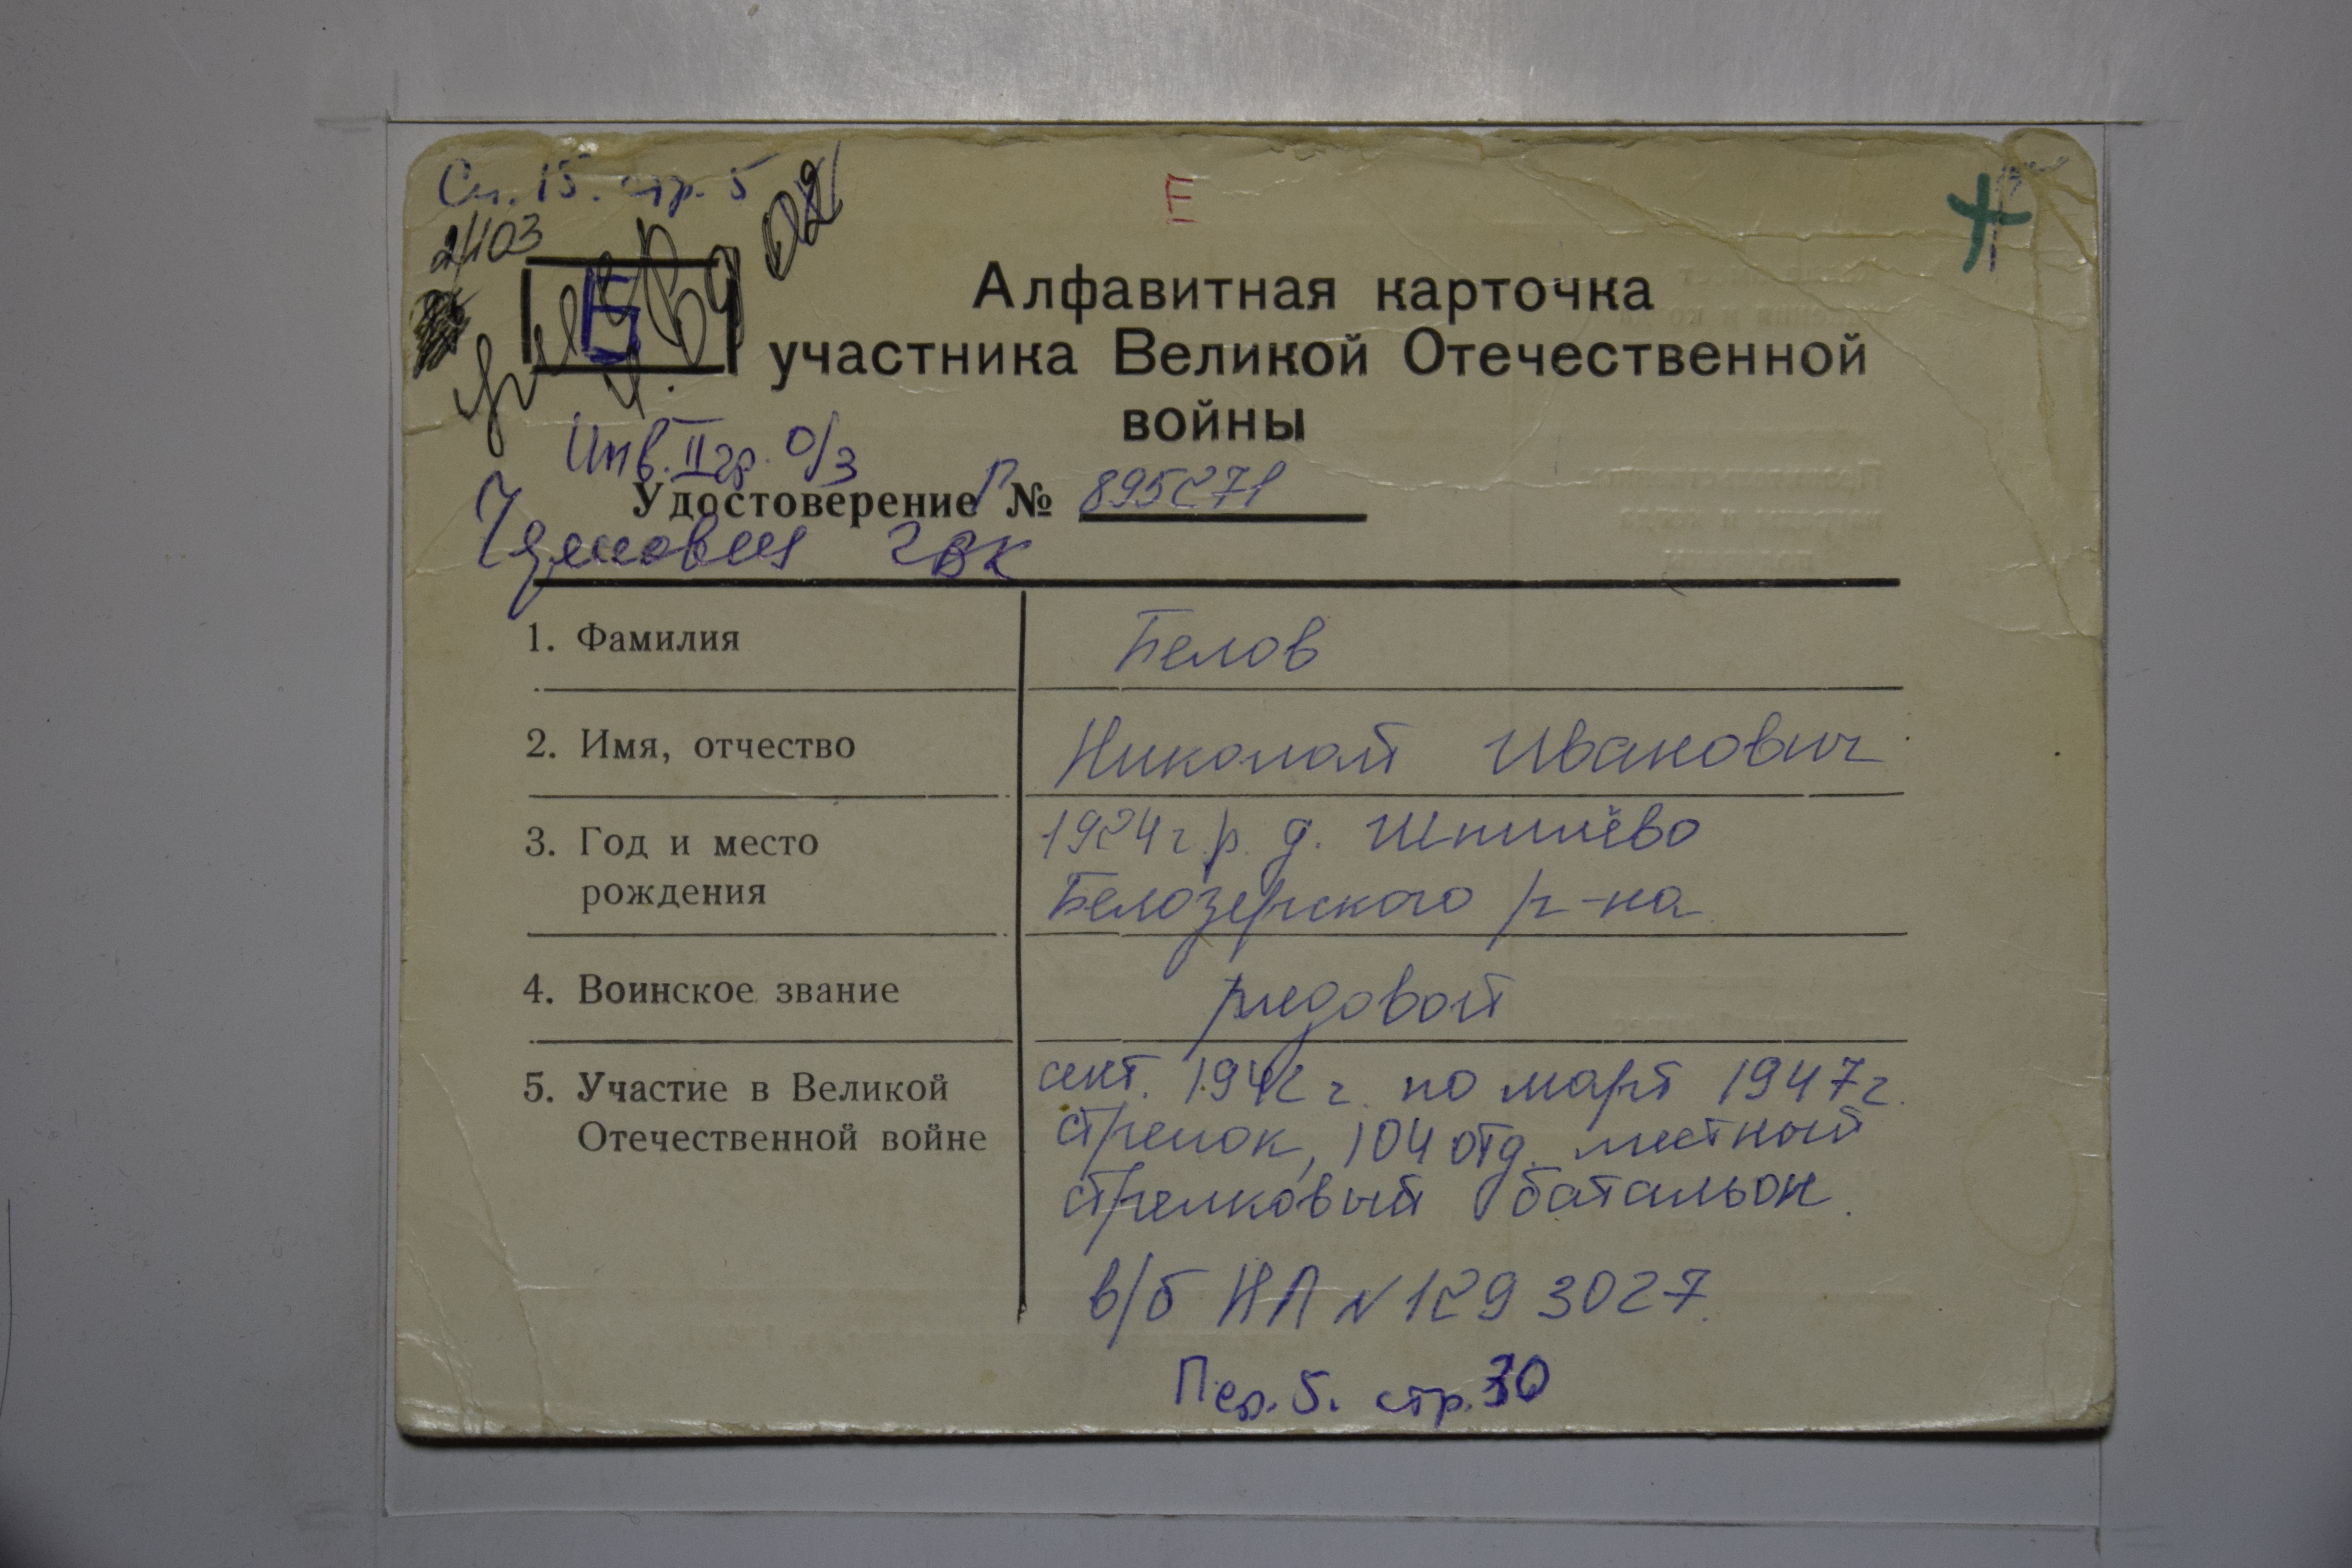 Сп. 15. стр. 5
02
Е
2403
Б
Алфавитная карточка
участника Великой Отечественной
войны
Инв. II гр. О/З
Удостоверение Г № 895271
ГВК
1. Фамилия Белов
2. Имя, отчество Николай Иванович
3. Год и место 1924 г.р. д. Шпилёво
рождения Белозерского р-на
4. Воинское звание рядовой
5. Участие в Великой сент. 1942 г. по март 1947 г.
Отечественной войне стрелок, 104 отд. местный
стрелковый батальон.
в/б НЛ N 1293027.
Пер. 5. стр. 30